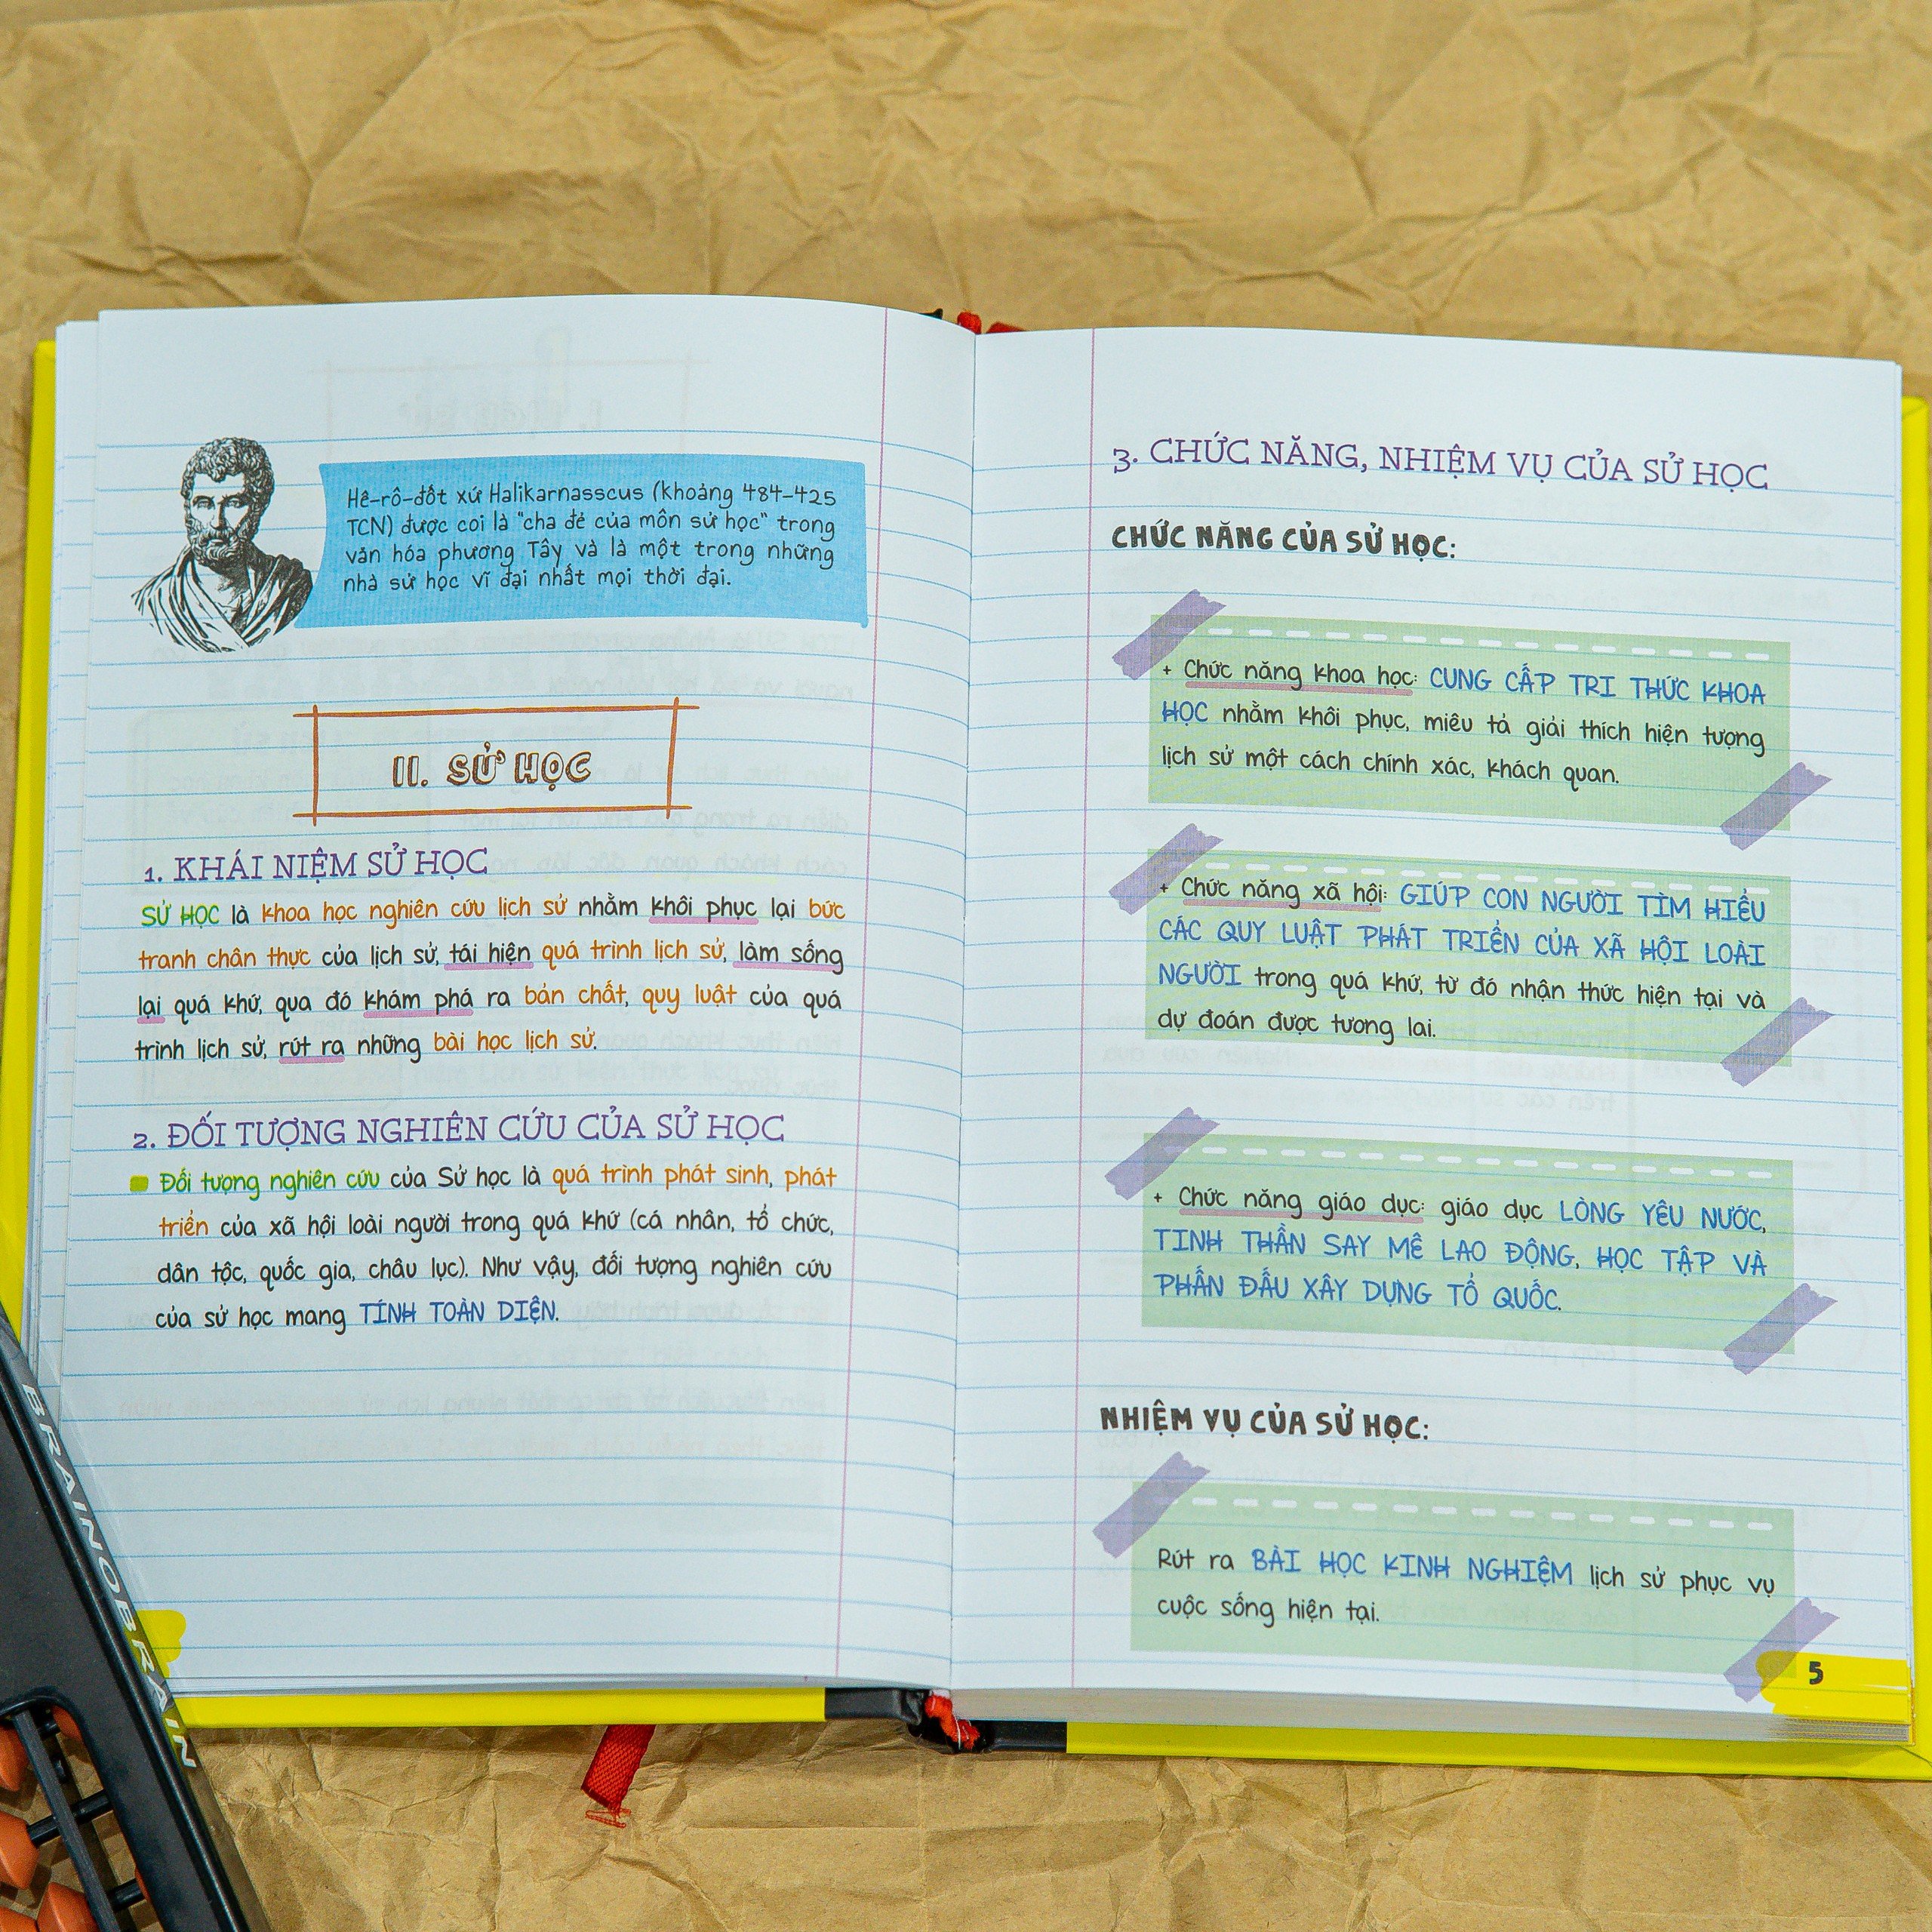 Hê-rô-đốt xứ Halikarnasscus (khoảng 484-425
TCN) được coi là "cha đẻ của môn sử học" trong
văn hóa phương Tây và là một trong những
nhà sử học vĩ đại nhất mọi thời đại.
II. SỬ HỌC
1. KHÁI NIỆM SỬ HỌC
SỬ HỌC là khoa học nghiên cứu lịch sử nhằm khôi phục lại bức
tranh chân thực của lịch sử, tái hiện quá trình lịch sử, làm sống
lại quá khứ, qua đó khám phá ra bản chất, quy luật của quá
trình lịch sử, rút ra những bài học lịch sử.
2. ĐỐI TƯỢNG NGHIÊN CỨU CỦA SỬ HỌC
Đối tượng nghiên cứu của Sử học là quá trình phát sinh, phát
triển của xã hội loài người trong quá khứ (cá nhân, tổ chức,
dân tộc, quốc gia, châu lục). Như vậy, đối tượng nghiên cứu
của sử học mang TÍNH TOÀN DIỆN.
BRAINOBRAIN
3. CHỨC NĂNG, NHIỆM VỤ CỦA SỬ HỌC
CHỨC NĂNG CỦA SỬ HỌC:
+ Chức năng khoa học: CUNG CẤP TRI THỨC KHOA
HỌC nhằm khôi phục, miêu tả giải thích hiện tượng
lịch sử một cách chính xác, khách quan.
+ Chức năng xã hội: GIÚP CON NGƯỜI TÌM HIỂU
CÁC QUY LUẬT PHÁT TRIỂN CỦA XÃ HỘI LOÀI
NGƯỜI trong quá khứ, từ đó nhận thức hiện tại và
dự đoán được tương lai.
+ Chức năng giáo dục: giáo dục LÒNG YÊU NƯỚC,
TINH THẦN SAY MÊ LAO ĐỘNG, HỌC TẬP VÀ
PHẤN ĐẤU XÂY DỰNG TỔ QUỐC.
NHIỆM VỤ CỦA SỬ HỌC:
Rút ra BÀI HỌC KINH NGHIỆM lịch sử phục vụ
cuộc sống hiện tại.
5